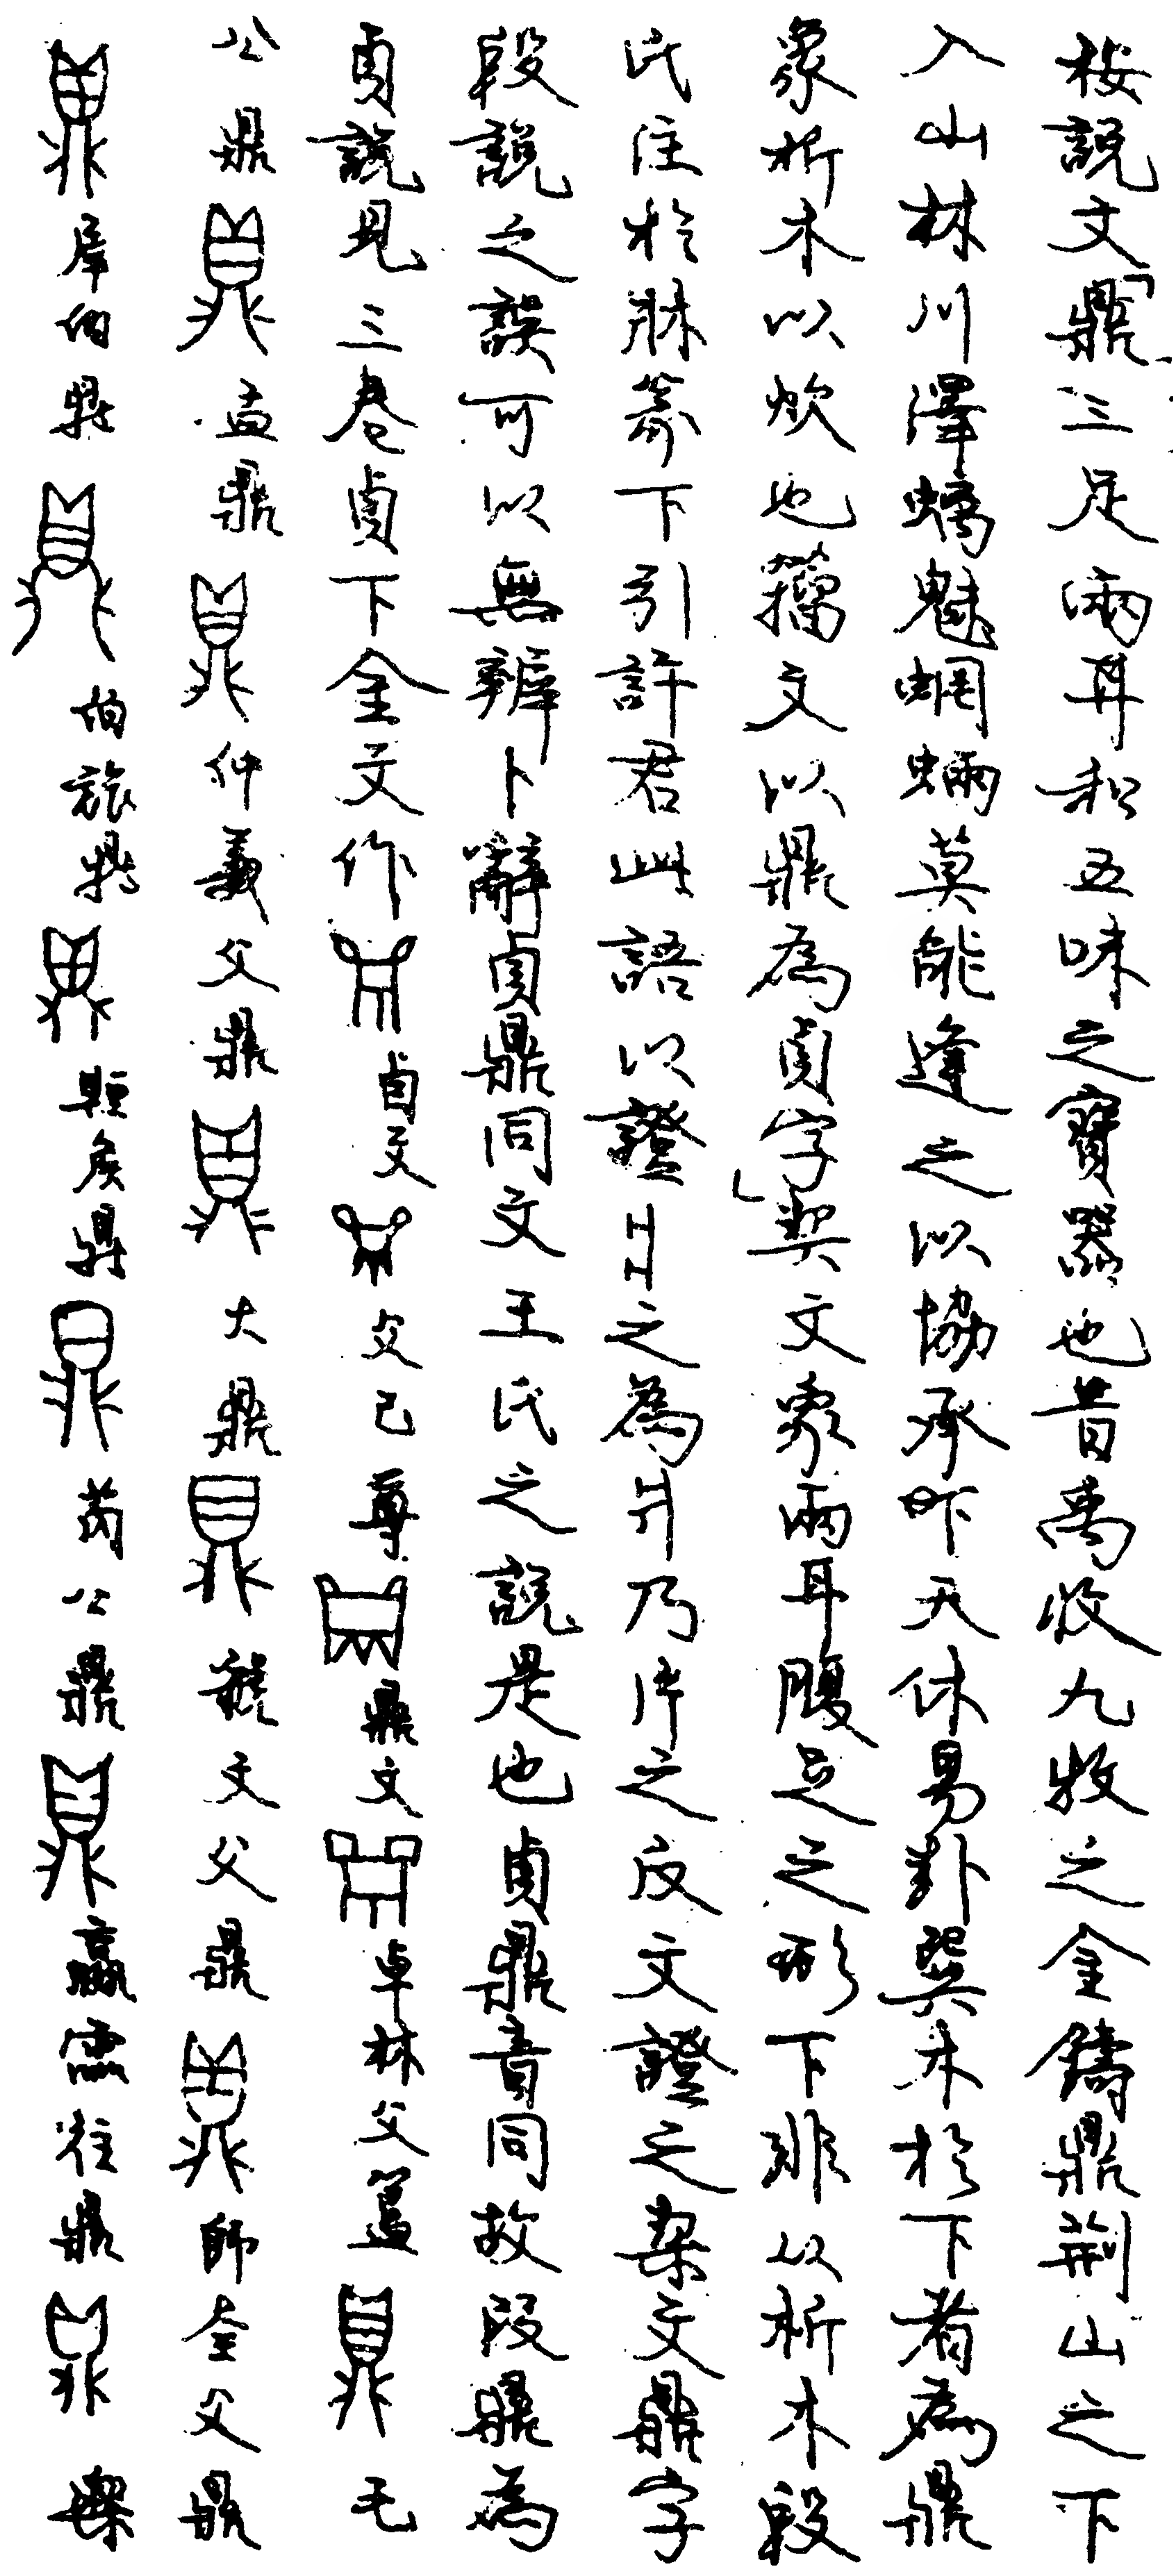 按說文「鼎三足兩耳和五味之寶器也昔禹收九牧之金鑄鼎荆山之下
入山林川澤螭魅蝄蜽莫能逢之以協承昨天休易卦巽木於下者為鼎
象析木以炊也籀文以鼎為貞字」契文象兩耳腹足之形下非以析木段
氏注於牀篆下引許君此語以證爿之為爿乃片之反文證之栔文鼎字
段說之誤可以無辨卜辭貞鼎同文王氏之說是也貞鼎音同故叚鼎為
貞說見三卷貞下金文作 卣文 父己尊 鼎文 卓林父簋 毛
公鼎 盂鼎 仲義父鼎 大鼎 虢文父鼎 師全父鼎
犀伯鼎 伯旅鼎 㫃矦鼎 芮公鼎 嬴霝 鼎